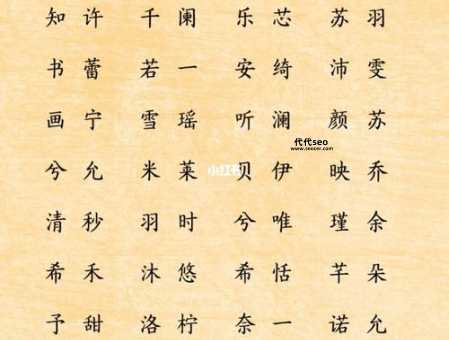 知许 千阑 乐芯 苏羽
书蕾 若一 安绮 沛雯
画宁 雪瑶 听澜 颜苏
代代seo
www.seocer.com
兮允 米莱 贝伊 映乔
小红书
清秒 羽时 兮唯 瑾余
希禾 沐悠 希恬 芊朵
予甜 洛柠 奈一 诺允